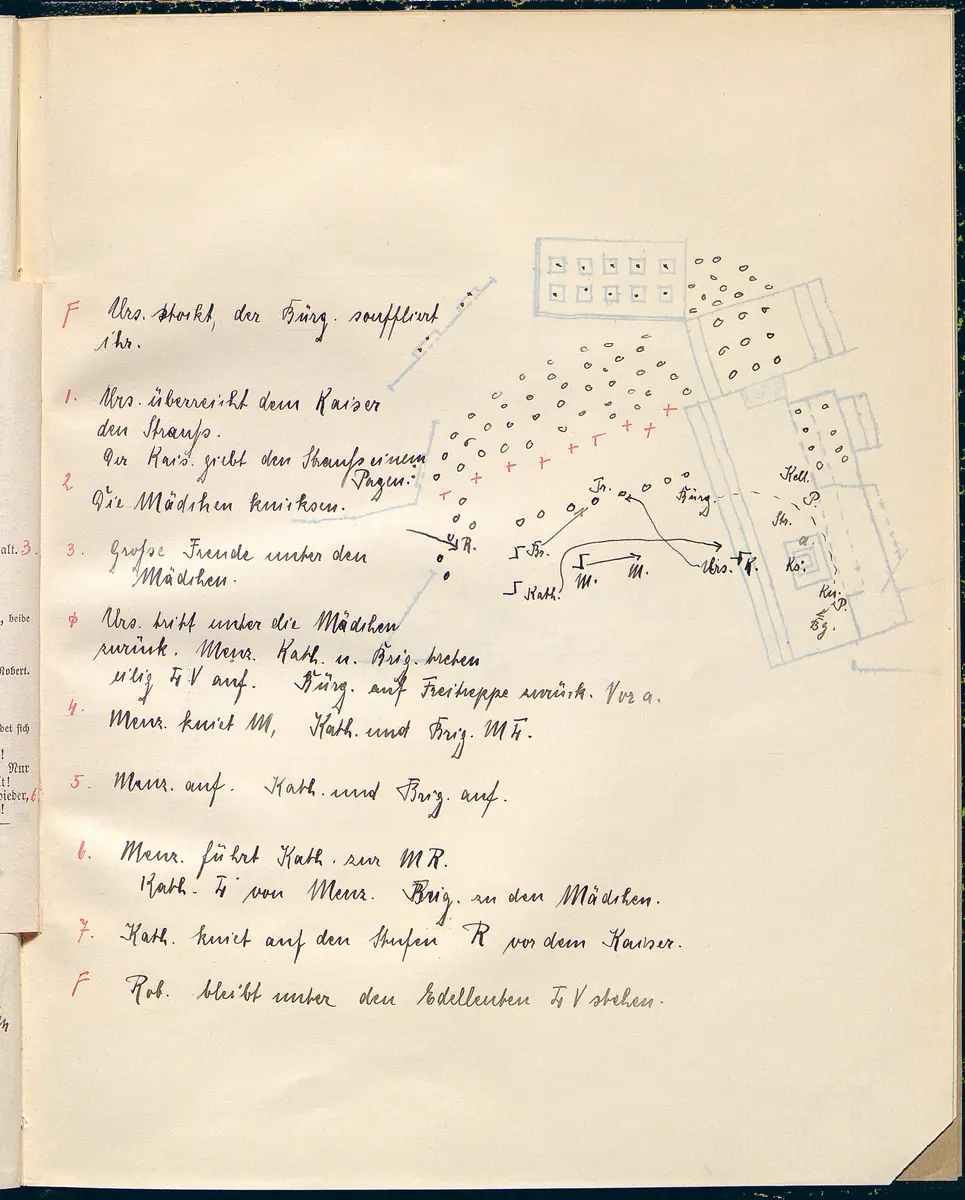 F Urs. stockt, der Bürg. souffliert
ihr.
1. Urs. überreicht dem Kaiser
den Strauß.
Der Kais. giebt den Strauß einem
Pagen.
2 Die Mädchen knicksen.
3. Große Freude unter den
Mädchen.
φ Urs. tritt unter die Mädchen
zurück. Menz. Kath. u. Brig. treten
eilig L V auf. Bürg. auf Freitreppe zurück. Vor a.
4. Menz. kniet M, Kath. und Brig. M L.
5. Menz. auf. Kath. und Brig. auf.
6. Menz. führt Kath. zur M R.
Kath. L von Menz. Brig. zu den Mädchen.
7. Kath. kniet auf den Stufen R vor dem Kaiser.
F Rob. bleibt unter den Edelleuten L V stehen.
Fr.
Bürg.
Kell.
P.
Str.
a.
R.
Br.
M.
M.
Urs.
K.
Ks.
Kath.
Ku.
P.
Bg.
alt. 3.
, beide
Robert.
det sich
!
Nur
t!
nieder, 6
!